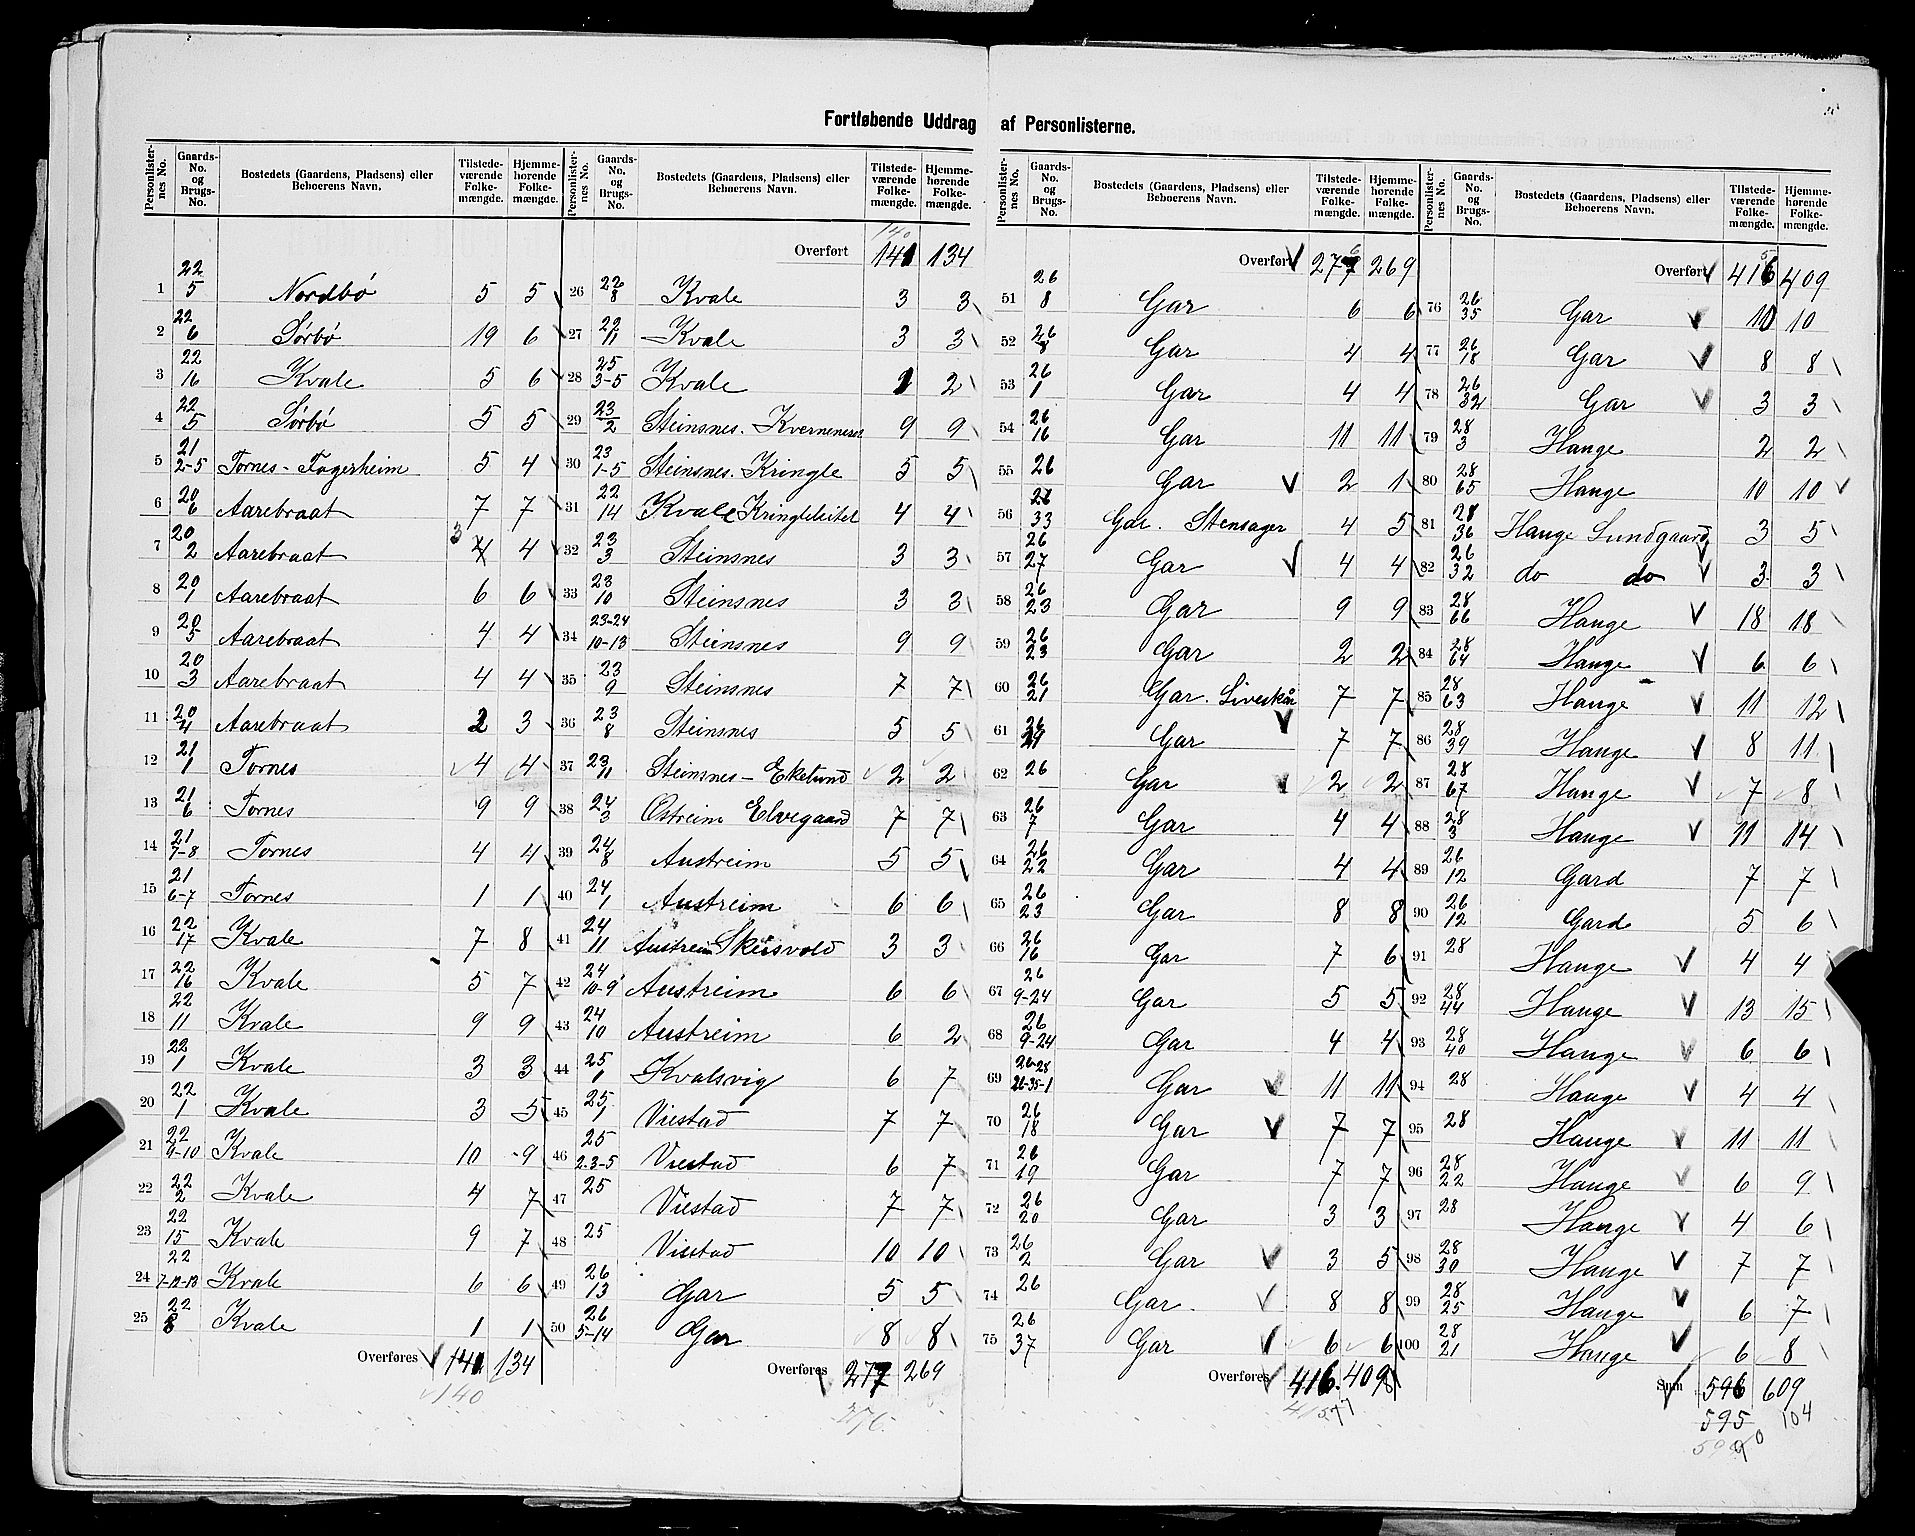 Fortløbende Uddrag af Personlisterne.
Personlister-nes No. | Gaards-No. og Brugs-No. | Bostedets (Gaardens, Pladsens) eller Beboerens Navn. | Tilstede-værende Folke-mængde. | Hjemme-hørende Folke-mængde.
1 22/5 Nordbø 5 5
2 22/6 Sørbø 19 6
3 22/16 Kvale 5 6
4 22/5 Sørbø 5 5
5 21/2-5 Tornes - Fagerheim 5 4
6 20/6 Aarebraat 7 7
7 20/2 Aarebraat 3 4 4
8 20/1 Aarebraat 6 6
9 20/5 Aarebraat 4 4
10 20/3 Aarebraat 4 4
11 20/4 Aarebraat 2 3
12 21/1 Tornes 4 4
13 21/6 Tornes 9 9
14 21/7-8 Tornes 4 4
15 21/6-7 Tornes 1 1
16 22/17 Kvale 7 8
17 22/16 Kvale 5 7
18 22/11 Kvale 9 9
19 22/1 Kvale 3 3
20 22/1 Kvale 3 5
21 22/9-10 Kvale 10 9
22 22/2 Kvale 4 7
23 22/15 Kvale 9 7
24 22/7-12-13 Kvale 6 6
25 22/8 Kvale 1 1
Overføres 141 134
140
Personlister-nes No. | Gaards-No. og Brugs-No. | Bostedets (Gaardens, Pladsens) eller Beboerens Navn. | Tilstede-værende Folke-mængde. | Hjemme-hørende Folke-mængde.
140
Overført 141 134
26 22/8 Kvale 3 3
27 22/11 Kvale 3 3
28 25/3-5 Kvale 2
29 23/2 Steinsnes. Kverneneset 9 9
30 23/1-5 Steinsnes. Kringle 5 5
31 22/14 Kvale Kringleleitet 4 4
32 23/3 Steinsnes 3 3
33 23/10 Steinsnes 3 3
34 23-24/10-13 Steinsnes 9 9
35 23/9 Steinsnes 7 7
36 23/8 Steinsnes 5 5
37 23/11 Steinsnes - Ekelund 2 2
38 24/3 Østreim Elvegaard 7 7
39 24/8 Austreim 5 5
40 24/1 Austreim 6 6
41 24/11 Austreim Skeisvold 3 3
42 24/10-9 Austreim 6 6
43 24/10 Austreim 6 2
44 25/1 Kvalsvig 6 7
45 25/1 Viestad 7 7
46 25/2-3-5 Viestad 6 7
47 25 Viestad 7 7
48 25 Viestad 10 10
49 26/13 Gar 5 5
50 26/5-14 Gar 8 8
Overføres 277 269
276
Personlister-nes No. | Gaards-No. og Brugs-No. | Bostedets (Gaardens, Pladsens) eller Beboerens Navn. | Tilstede-værende Folke-mængde. | Hjemme-hørende Folke-mængde.
Overført 277 6 269
51 26/8 Gar 6 6
52 26/8 Gar 4 4
53 26/1 Gar 4 4
54 26/16 Gar 11 11
55 26 Gar 2 1
56 26/33 Gar. Stensager 4 5
57 26/27 Gar 4 4
58 26/23 Gar 9 9
59 26/23 Gar 2 2
60 26/21 Gar. Liveskån 7 7
61 26 Gar 7 7
62 26 Gar 2 2
63 26/7 Gar 4 4
64 26/22 Gar 4 4
65 26/23 Gar 8 8
66 26/16 Gar 7 6
67 26/9-24 Gar 5 5
68 26/9-24 Gar 4 4
69 26-28/26-35-1 Gar 11 11
70 26/18 Gar 7 7
71 26/19 Gar 7 7
72 26/20 Gar 3 3
73 26/2 Gar 3 5
74 26 Gar. 8 8
75 26/37 Gar 6 6
Overføres 416 409
415
Personlister-nes No. | Gaards-No. og Brugs-No. | Bostedets (Gaardens, Pladsens) eller Beboerens Navn. | Tilstede-værende Folke-mængde. | Hjemme-hørende Folke-mængde.
5
Overført 416 409
76 26/35 Gar 10 10
77 26/18 Gar 8 8
78 26/32 Gar 3 3
79 28/3 Hauge 2 2
80 28/65 Hauge 10 10
81 28/36 Hauge Sundgaard 3 5
82 26/32 do do 3 3
83 28/66 Hauge 18 18
84 28/64 Hauge 6 6
85 28/63 Hauge 11 12
86 28/39 Hauge 8 11
87 28/67 Hauge 7 8
88 28/3 Hauge 11 14
89 26/12 Gard 7 7
90 26/12 Gard 5 6
91 28 Hauge 4 4
92 28/44 Hauge 13 15
93 28/40 Hauge 6 6
94 28 Hauge 4 4
95 28 Hauge 11 11
96 28/22 Hauge 6 9
97 28 Hauge 4 6
98 28/30 Hauge 7 7
99 28/25 Hauge 6 7
100 28/21 Hauge 6 8
Sum 596 609
595 104